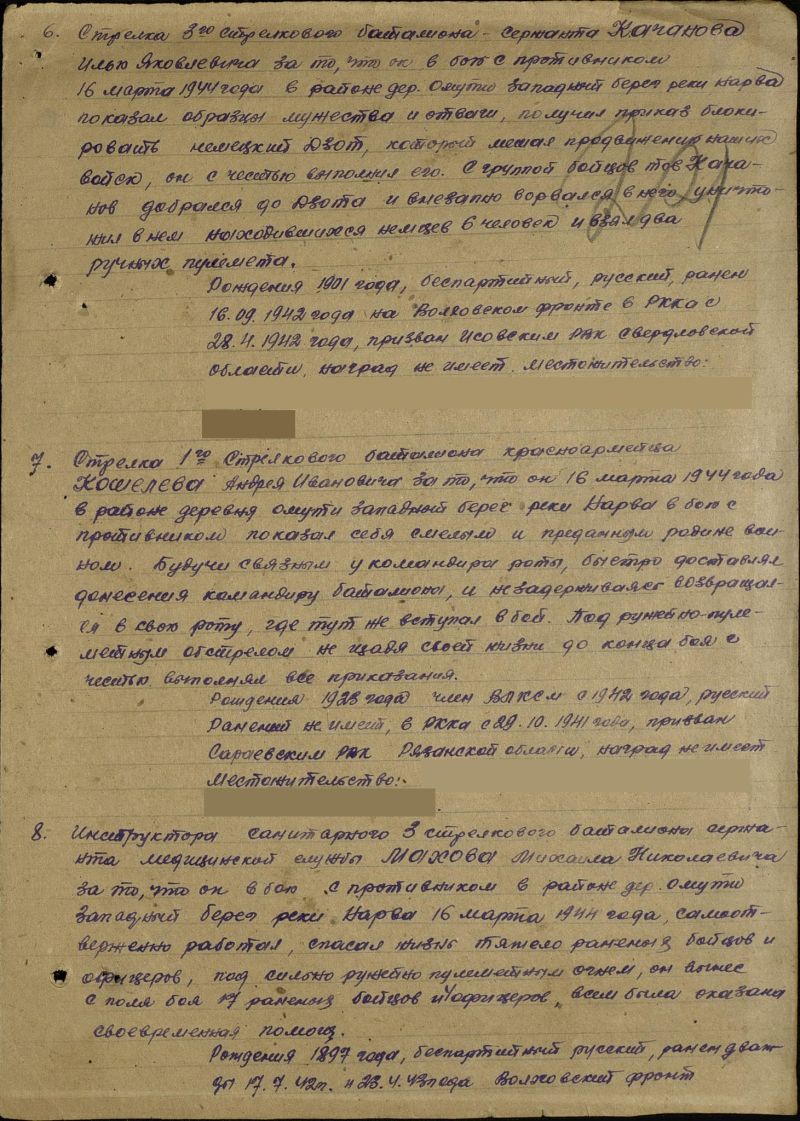 6. Стрелка 3го стрелкового баталиона - сержанта Качанова
Илью Яковлевича за то, что он в бою с противником
16 марта 1944 года в районе дер. Омути западный берег реки Нарва
показал образцы мужества и отваги, получил приказ блоки-
ровать немецкий Дзот, который мешал продвижению наших
войск, он с честью выполнил его. С группой бойцов тов Кача-
нов добрался до Дзота и внезапно ворвался в него уничто-
жил в нем находившихся немцев 6 человек и взял два
ручных пулемета.
Рождения 1901 года, беспартийный, русский, ранен
16.09.1942 года на Волховском фронте в РККА с
28.4.1942 года, призван Исовским РВК Свердловской
области, наград не имеет. Местожительство:
7. Стрелка 1го Стрелкового баталиона красноармейца
Кошелева Андрея Ивановича за то, что он 16 марта 1944 года
в районе деревня Омути западный берег реки Нарва в бою с
противником показал себя смелым и преданным родине вои-
ном. Будучи связным у командира роты, быстро доставлял
донесения командиру баталиона, и не задерживаясь возвращал-
ся в свою роту, где тут же вступал в бой. Под ружейно-пуле-
метным обстрелом не щадя своей жизни до конца боя с
честью выполнял все приказания.
Рождения 1923 года член ВЛКСМ с 1942 года, русский
Ранений не имеет, в РККА с 29.10.1941 года, призван
Сараевским РВК Рязанской области, наград не имеет
Местожительство:
8. Инструктора санитарного 3 стрелкового баталиона сержа-
нта медицинской службы Махова Михаила Николаевича
за то, что он в бою с противником в районе дер. Омути
Западный берег реки Нарва 16 марта 1944 года, самоот-
верженно работал, спасал жизнь тяжело раненых бойцов и
офицеров, под сильно ружейно пулеметным огнем, он вынес
с поля боя 17 раненых бойцов и 4 офицеров, всем была оказана
своевременная помощ.
Рождения 1897 года, беспартийный русский, ранен дваж-
ды 17.7.42г. и 23.4.43 года Волховский фронт